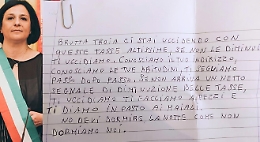 BRUTTA TROIA CI STAI UCCIDENDO CON
QUESTE TASSE ALTISSIME, SE NON LE DIMINUI
TI UCCIDIAMO. CONOSCIAMO IL TUO INDIRIZZO,
CONOSCIAMO LE TUE ABITUDINI, TI SEGUIAMO
PASSO DOPO PASSO. SE NON ARRIVA UN NETTO
SEGNALE DI DIMINUZIONE DELLE TASSE,
TI UCCIDIAMO TI FACCIAMO A PEZZI E
TI DIAMO IN PASTO AI MAIALI.
NO DEVI DORMIRE LA NOTTE COME NON
DORMIAMO NOI.